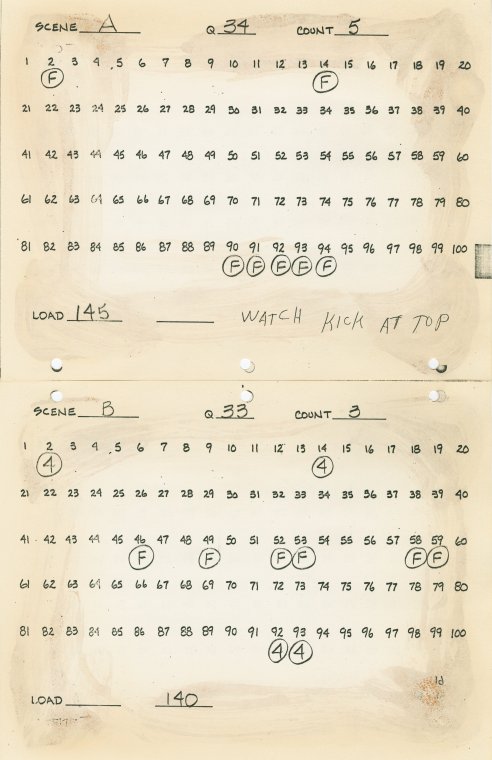 SCENE A Q 34 COUNT 5
1 2 3 4 5 6 7 8 9 10 11 12 13 14 15 16 17 18 19 20
F F
21 22 23 24 25 26 27 28 29 30 31 32 33 34 35 36 37 38 39 40
41 42 43 44 45 46 47 48 49 50 51 52 53 54 55 56 57 58 59 60
61 62 63 64 65 66 67 68 69 70 71 72 73 74 75 76 77 78 79 80
81 82 83 84 85 86 87 88 89 90 91 92 93 94 95 96 97 98 99 100
F F F F F
LOAD 145 WATCH KICK AT TOP
SCENE B Q 33 COUNT 3
1 2 3 4 5 6 7 8 9 10 11 12 13 14 15 16 17 18 19 20
4 4
21 22 23 24 25 26 27 28 29 30 31 32 33 34 35 36 37 38 39 40
41 42 43 44 45 46 47 48 49 50 51 52 53 54 55 56 57 58 59 60
F F F F F F
61 62 63 64 65 66 67 68 69 70 71 72 73 74 75 76 77 78 79 80
81 82 83 84 85 86 87 88 89 90 91 92 93 94 95 96 97 98 99 100
4 4
LOAD 140